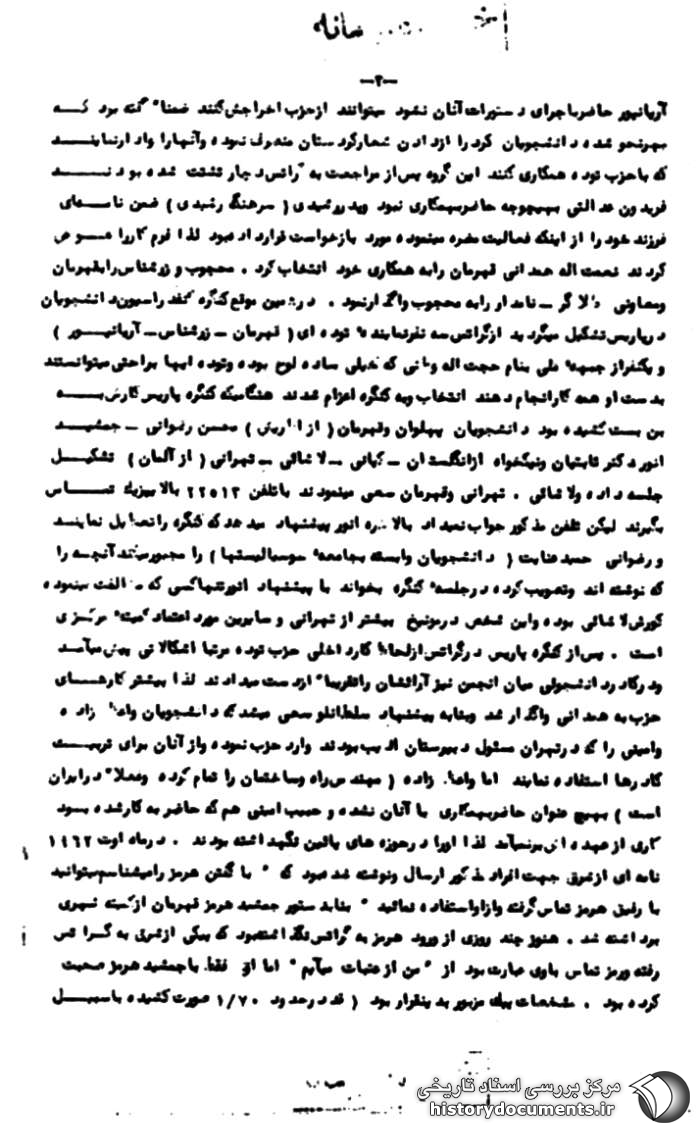 مانه
-۲-
آریانپور حاضر باجرای دستورات آنان نشود میتوانند از حزب اخراجش کنند ضمنا گفته بود که
بهر نحو شده دانشجویان کرد را از دادن شعار کردستان منحرف نموده و آنها را وادار نمایند
که با حزب توده همکاری کنند این گروه پس از مراجعت به گراتس دچار تشتت شده بودند
فریدون عدالتی بهیچوجه حاضر بهمکاری نبود و پدر رشیدی (سرهنگ رشیدی) ضمن نامه‌ای
فرزند خود را از اینکه فعالیت مضره مینموده مورد بازخواست قرار داده بود لذا فرم کار را عوض
کردند نعمت اله همدانی قهرمان را به همکاری خود انتخاب کرد . محجوب و زرشناس را بقهرمان
و معاونی دلاگر - نامدار را به محجوب واگذار نمود . در همین موقع کنگره کنفدراسیون دانشجویان
در پاریس تشکیل میگردید از گراتس سه نفر نماینده توده ای (قهرمان - زرشناس - آریانپور)
و یکنفر از جبهه ملی بنام حجت اله وثانی که خیلی ساده لوح بوده و توده ایها براحتی میتوانستند
بدست او همه کار انجام دهند انتخاب و به کنگره اعزام شدند هنگامیکه کنگره پاریس کارش به
بن بست کشیده بود دانشجویان پهلوان و قهرمان (از اتریش) محسن رضوانی - جمشید
انور دکتر ثابتیان و نیکخواه از انگلستان - کیانی - لاشائی - تهرانی (از آلمان) تشکیل
جلسه داده و لاشائی . تهرانی و قهرمان سعی مینمودند با تلفن ۲۲۵۱۳ با لایپزیک تماس
بگیرند لیکن تلفن مذکور جواب نمیداد بالاخره انور پیشنهاد میدهد که کنگره را تعطیل نمایند
و رضوانی حمید عنایت (دانشجویان وابسته بجامعه سوسیالیستها) را مجبور میکند آنچه را
که نوشته اند و تصویب کرده در جلسه کنگره بخواند با پیشنهاد انور تنها کسی که مخالفت مینموده
کورش لاشائی بوده و این شخص در مونیخ بیشتر از تهرانی و سایرین مورد اعتماد کمیته مرکزی
است . پس از کنگره پاریس در گراتس از لحاظ کار داخلی حزب توده مرتبا اشکالاتی پیش میآمد
و در کادر دانشجوئی میان انجمن نیز آرائشان را تقریبا از دست میدادند لذا بیشتر کارهای
حزب به همدانی واگذار شد و بنا به پیشنهاد سلطانلو سعی میشد که دانشجویان واعظ زاده
و امینی را که در تهران مسئول دبیرستان ادیب بودند وارد حزب نموده و از آنان برای تربیت
کادرها استفاده نمایند اما واعظ زاده (مهندس راه و ساختمان را تمام کرده و فعلا در ایران
است) بهیچ عنوان حاضر بهمکاری با آنان نشده و حبیب امینی هم که حاضر به کار شده بود
کاری از عهده اش برنمیآمد لذا او را در حوزه های پائین نگهداشته بودند . در ماه اوت ۱۹۶۲
نامه ای از شرق جهت افراد مذکور ارسال و نوشته شده بود که " با گفتن هرمز را میشناسم میتوانید
با رفیق هرمز تماس گرفته و از او استفاده نمائید " بنا بدستور جمشید هرمز قهرمان از کمیته شهری
برداشته شد . هنوز چند روزی از ورود هرمز به گراتس نگذشته بود که پیکی از شرق به گراتس
رفته و رمز تماس با وی عبارت بود از " من از عتبات میآیم " اما او فقط با جمشید هرمز صحبت
کرده بود . مشخصات پیک مزبور بدینقرار بود ( قد در حدود ۱/۷۰ صورت کشیده با سبیل
مرکز بررسی اسناد تاریخی
historydocuments.ir